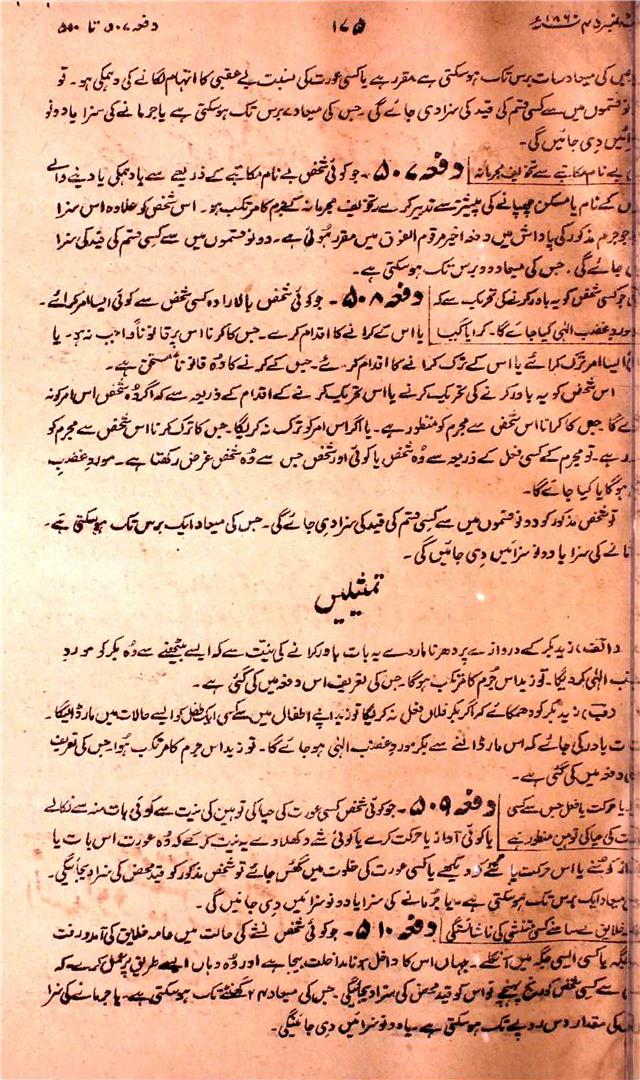 نمبر ۴۵ ۱۸۶۰ء ۱۷۵ دفعہ ۵۰۷ تا ۵۱۰
میں کی میعاد سات برس تک ہوسکتی ہے مقرر ہے یا کسی عورت کی نسبت بے عفتی کا اتہام لگانے کی دہمکی ہو۔ تو
قسموں میں سے کسی قسم کی قید کی سزا دی جائے گی۔ جس کی میعاد ۷ برس تک ہوسکتی ہے یا جرمانے کی سزا یا دونو
سزائیں دی جائیں گی۔
بے نام مکاتبے سے تخویف مجرمانہ دفعہ ۵۰۷۔ جو کوئی شخص بے نام مکاتبے کے ذریعے سے یا دہمکی یا دینے والے
کے نام یا مسکن چھپانے کی پیشتر سے تدبیر کرکے تخویف مجرمانہ کے جرم کا مرتکب ہو۔ اس شخص کو علاوہ اس سزا
جو جرم مذکور کی پاداش میں دفعہ اخیر مرقوم الفوق میں مقرر ہوئی ہے۔ دونو قسموں میں سے کسی قسم کی قید کی سزا
جائے گی، جس کی میعاد دو برس تک ہوسکتی ہے۔
جو کسی شخص کو یہ باور کرنے کی تحریک سے کہ دفعہ ۵۰۸۔ جو کوئی شخص بالارادہ کسی شخص سے کوئی ایسا امر کرائے۔
مورد غضب الٰہی کیا جائے گا۔ کرایا گیا یا اس کے کرانے کا اقدام کرے۔ جس کا کرنا اس پر قانوناً واجب نہ ہو۔ یا
ایسا امر ترک کرائے یا اس کے ترک کرانے کا اقدام کرے۔ جس کے کرنے کا وہ قانوناً مستحق ہے۔
اس شخص کو یہ باور کرنے کی تحریک کرنے یا اس تحریک کرنے کے اقدام کے ذریعہ سے کہ اگر وہ شخص اس امر کو نہ
گا جس کا کرانا اس شخص سے مجرم کو منظور ہے۔ یا اگر اس امر کو ترک نہ کریگا۔ جس کا ترک کرنا اس شخص سے مجرم کو
ہے۔ تو مجرم کے کسی فعل کے ذریعہ سے وہ شخص یا کوئی اور شخص جس سے وہ شخص غرض رکھتا ہے۔ مورد غضب
ہوگا یا کیا جائے گا۔
تو شخص مذکور کو دونو قسموں میں سے کسی قسم کی قید کی سزا دی جائے گی۔ جس کی میعاد ایک برس تک ہوسکتی ہے۔
کی سزا یا دونو سزائیں دی جائیں گی۔
تمثیلیں
(الف) زید بکر کے دروازے پر دھرنا مار دے یہ بات باور کرانے کی نیت سے کہ ایسے بیٹھنے سے وہ بکر کو مورد
الٰہی کردیگا۔ تو زید اس جرم کا مرتکب ہوگا۔ جس کی تعریف اس دفعہ میں کی گئی ہے۔
(ب) زید بکر کو دھمکائے کہ اگر بکر فلاں فعل نہ کریگا تو زید اپنے اطفال میں سے کسی ایک طفل کو ایسے حالات میں مار ڈالیگا۔
باور کی جائے کہ اس مار ڈالنے سے بکر مورد غضب الٰہی ہوجائے گا۔ تو زید اس جرم کا مرتکب ہوا۔ جس کی تعریف
دفعہ میں کی گئی ہے۔
یا حرکت یا فعل جس سے کسی دفعہ ۵۰۹۔ جو کوئی شخص کسی عورت کی حیا کی توہین کی نیت سے کوئی بات منہ سے نکالے
کی حیا کی توہین منظور ہے یا کوئی آواز یا حرکت کرے یا کوئی شے دکھلاوے یہ نیت کرکے کہ وہ عورت اس بات یا
کو سنے یا اس حرکت یا شے کو دیکھے یا کسی عورت کی خلوت میں گھس جائے تو شخص مذکور کو قید محض کی سزا دیجائیگی۔
میعاد ایک برس تک ہوسکتی ہے۔ یا جرمانے کی سزا یا دونو سزائیں دی جائیں گی۔
خلایق کے سامنے کسی متنشی کی ناشائستگی دفعہ ۵۱۰۔ جو کوئی شخص نشے کی حالت میں عامہ خلایق کی آمدورفت
جگہ یا کسی ایسی جگہ میں آنکلے۔ جہاں اس کا داخل ہونا مداخلت بیجا ہے اور وہ وہاں ایسے طریق پر عمل کرے کہ
سے کسی شخص کو رنج پہنچے تو اس کو قید محض کی سزا دیجائیگی۔ جس کی میعاد ۲۴ گھنٹے تک ہوسکتی ہے۔ یا جرمانے کی سزا
کی مقدار دس روپے تک ہوسکتی ہے۔ یا دونو سزائیں دی جائینگی۔